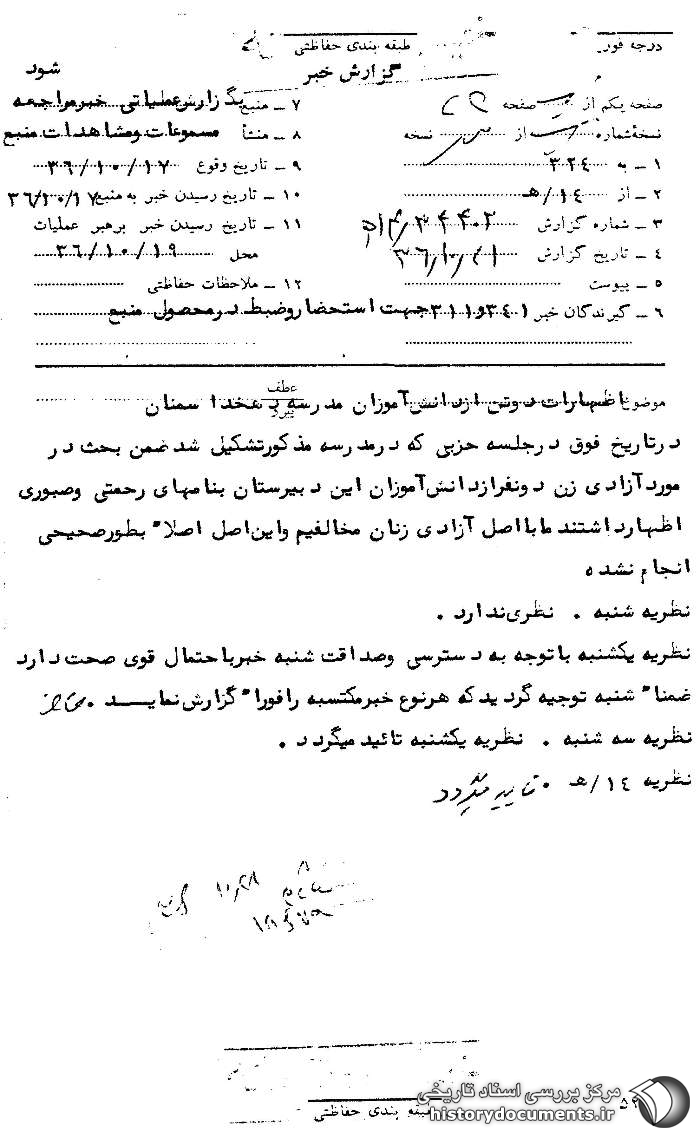 درجه فوریت
طبقه بندی حفاظتی
گزارش خبر
صفحه یکم از یک صفحه
نسخهٔ شماره از نسخه
۱ - به ۳۲۴
۲ - از ۱۴/ هـ
۳ - شماره گزارش
۴ - تاریخ گزارش
۵ - پیوست
۶ - گیرندگان خبر ۳۴۱و۳۱۱ جهت استحضار و ضبط در محصول منبع
۷ - منبع بگزارش عملیاتی خبر مراجعه شود
۸ - منشأ مسموعات ومشاهدات منبع
۹ - تاریخ وقوع ۳۶/۱۰/۱۷
۱۰ - تاریخ رسیدن خبر به منبع ۳۶/۱۰/۱۷
۱۱ - تاریخ رسیدن خبر برهبر عملیات
محل ۳۶/۱۰/۱۹
۱۲ - ملاحظات حفاظتی
عطف
پیرو
موضوع اظهارات دوتن ازدانش‌آموزان مدرسه دهخدا سمنان
درتاریخ فوق درجلسه حزبی که درمدرسه مذکورتشکیل شدضمن بحث در
موردآزادی زن دونفرازدانش‌آموزان این دبیرستان بنامهای رحمتی وصبوری
اظهارداشتند مابااصل آزادی زنان مخالفیم واین‌اصل اصلا" بطورصحیحی
انجام نشده
نظریه شنبه . نظری‌ندارد .
نظریه یکشنبه باتوجه به دسترسی وصداقت شنبه خبرباحتمال قوی صحت دارد
ضمنا" شنبه توجیه گردیدکه هرنوع خبرمکتسبه رافورا" گزارش نمایــد .
نظریه سه شنبه . نظریه یکشنبه تائید میگردد .
نظریه ۱۴/ هـ . تایید میگردد
طبقه بندی حفاظتی
مرکز بررسی اسناد تاریخی
historydocuments.ir